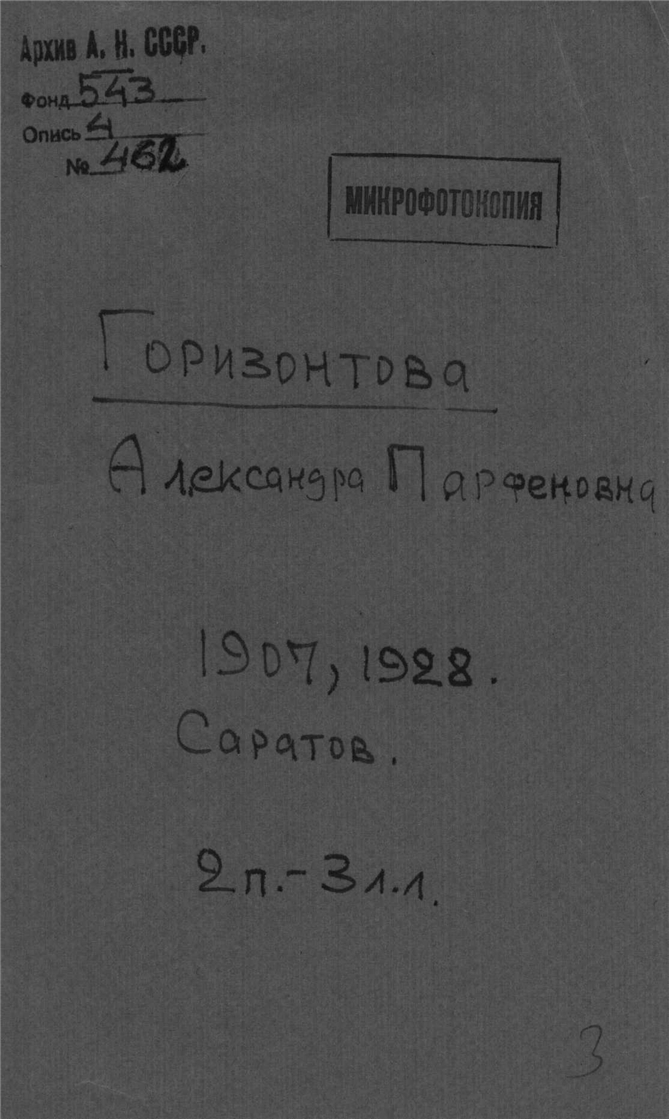 Архив А. Н. СССР.
Фонд 543
Опись 4
№ 462
МИКРОФОТОКОПИЯ
Горизонтова
Александра Парфеновна
1907, 1928.
Саратов.
2 п. - 3 л.л.
3